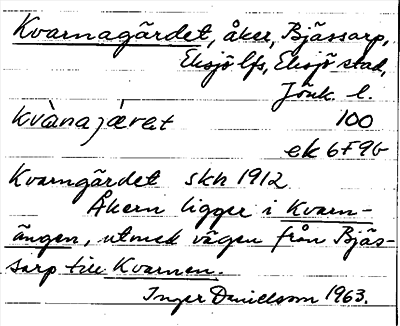 Kvarnagärdet, åker, Bjässarp,
Eksjö lfs, Eksjö stad,
Jönk. l.
kvànajæ̀ret 100
ek 6F9b
Kvarngärdet skh 1912
Åkern ligger i Kvarn-
ängen, utmed vägen från Bjäs-
sarp till Kvarnen.
Inger Danielsson 1963.